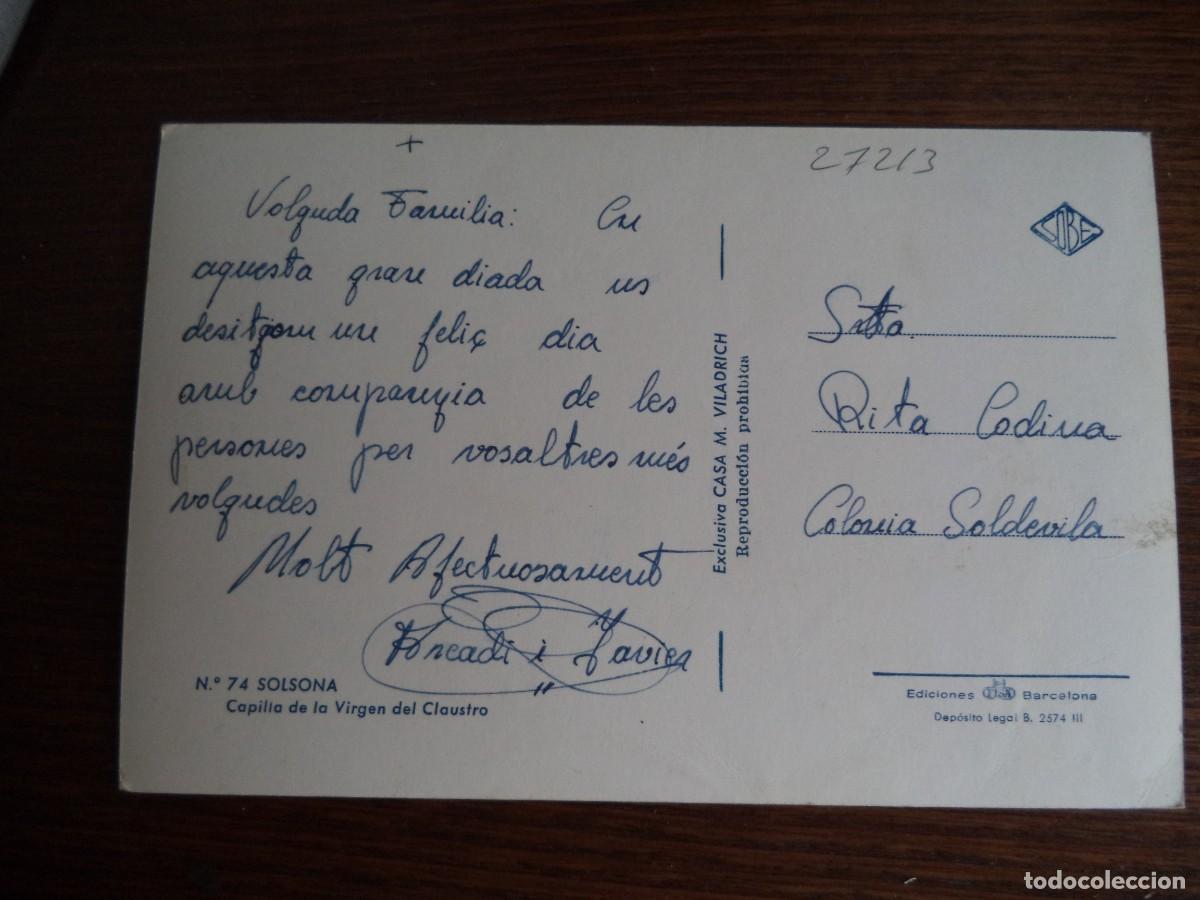 +
Volguda Familia: En
aquesta gran diada us
desitjom un feliç dia
amb companyia de les
persones per vosaltres més
volgudes
Molt Afectuosament
Arcadi i Xavier
N.º 74 SOLSONA
Capilla de la Virgen del Claustro
Exclusiva CASA M. VILADRICH
Reproducción prohibida
27213
SOBE
Srta.
Rita Codina
Colonia Soldevila
Ediciones Barcelona
Depósito Legal B. 2574 III
todocoleccion